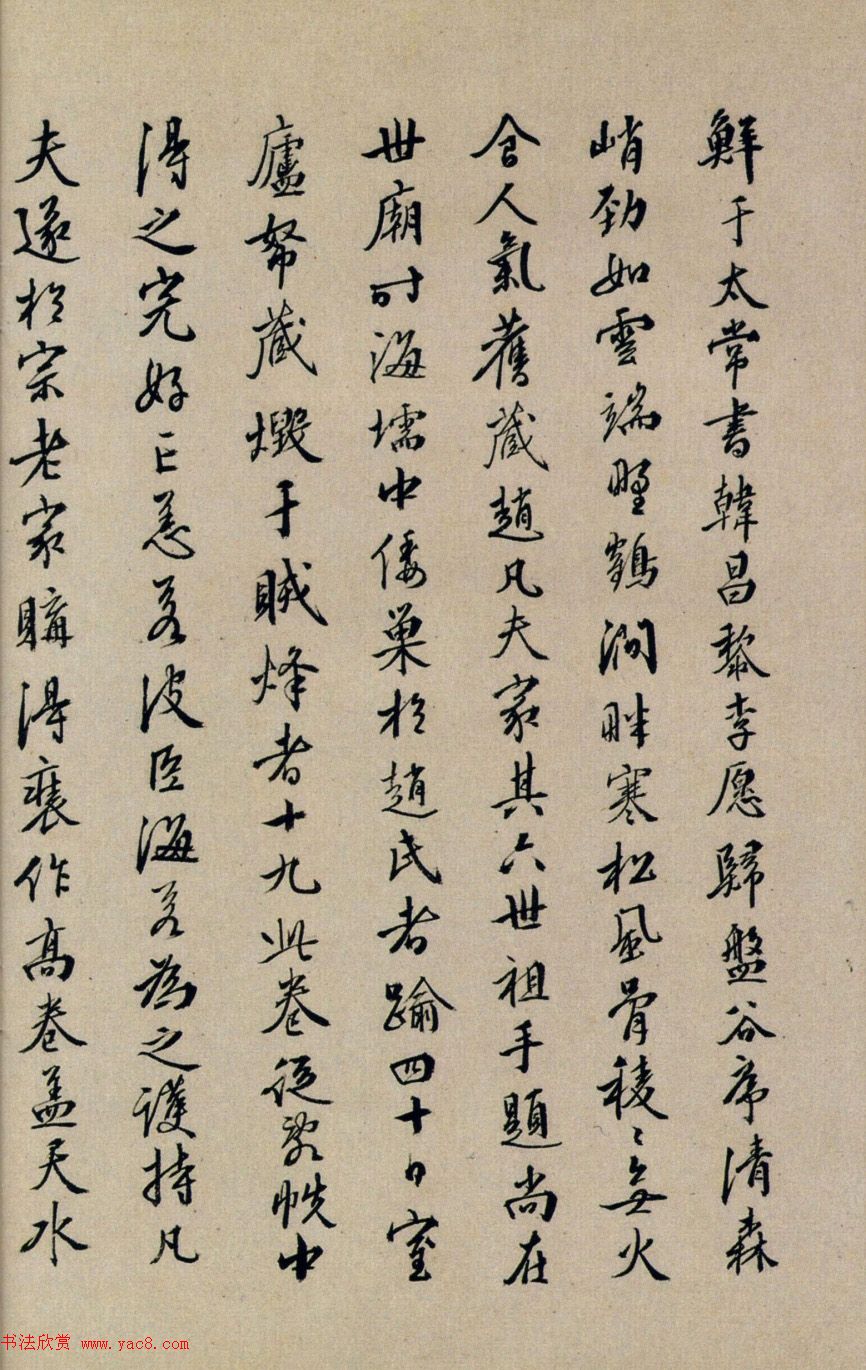 鮮于太常書韓昌黎李愿歸盤谷序清森
峭勁如雲端野鶴澗畔寒松風骨稜〻無火
食人氣舊藏趙凡夫家其六世祖手題尚在
世廟时海壖中倭巢於趙氏者踰四十日室
廬帑藏燬于賊烽者十九此卷從敗帙中
得之完好亡恙若波臣海若為之護持凡
夫遂於宗老家購得裝作高卷盖天水
书法欣赏 www.yac8.com